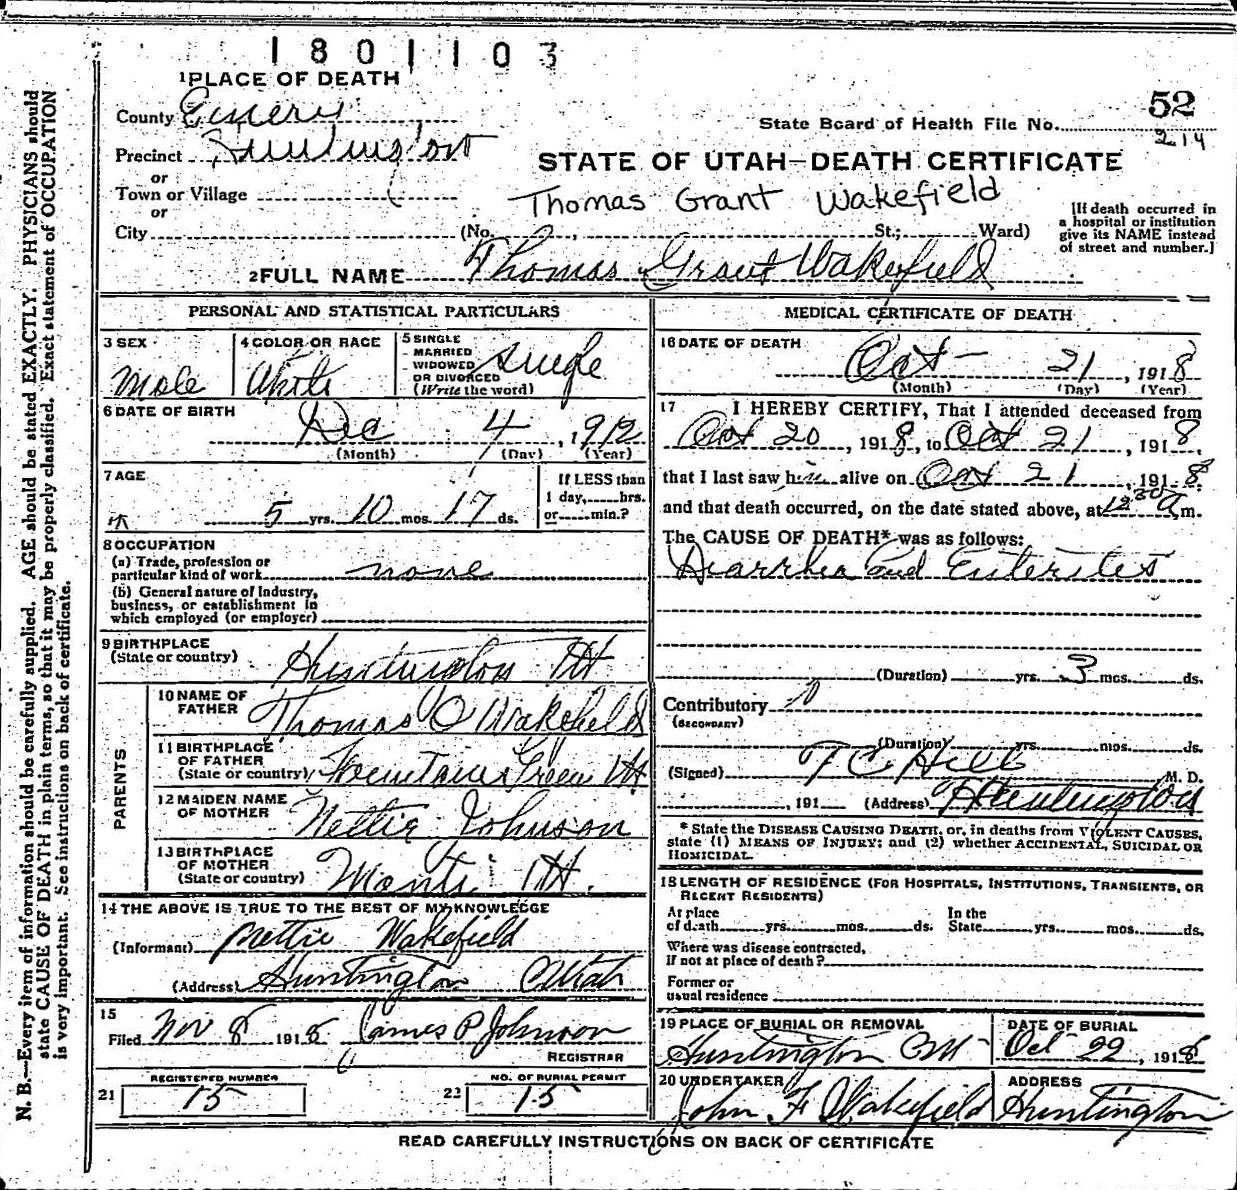 1801103
1 PLACE OF DEATH
County Emery
52
State Board of Health File No. 214
Precinct Huntington
or
STATE OF UTAH—DEATH CERTIFICATE
Town or Village
or
Thomas Grant Wakefield
City (No. , St.; Ward)
[If death occurred in
a hospital or institution
give its NAME instead
of street and number.]
2 FULL NAME Thomas Grant Wakefield
PERSONAL AND STATISTICAL PARTICULARS
3 SEX
Male
4 COLOR OR RACE
White
5 SINGLE
MARRIED
WIDOWED
OR DIVORCED
(Write the word)
single
6 DATE OF BIRTH
Dec 4, 1912
(Month) (Day) (Year)
7 AGE
5 yrs. 10 mos. 17 ds.
If LESS than
1 day, hrs.
or min.?
8 OCCUPATION
(a) Trade, profession or
particular kind of work none
(b) General nature of Industry,
business, or establishment in
which employed (or employer)
9 BIRTHPLACE
(State or country) Huntington Ut
PARENTS
10 NAME OF
FATHER Thomas O Wakefield
11 BIRTHPLACE
OF FATHER
(State or country) Fountain Green Ut
12 MAIDEN NAME
OF MOTHER Nettie Johnson
13 BIRTHPLACE
OF MOTHER
(State or country) Manti Ut.
14 THE ABOVE IS TRUE TO THE BEST OF MY KNOWLEDGE
(Informant) Nettie Wakefield
(Address) Huntington Utah
15
Filed Nov 8 1918 James P Johnson
REGISTRAR
REGISTERED NUMBER
21 15
NO. OF BURIAL PERMIT
22 15
MEDICAL CERTIFICATE OF DEATH
16 DATE OF DEATH
Oct - 21, 1918
(Month) (Day) (Year)
17 I HEREBY CERTIFY, That I attended deceased from
Oct 20, 1918, to Oct 21, 1918
that I last saw him alive on Oct 21, 1918.
and that death occurred, on the date stated above, at 12 30 a m.
The CAUSE OF DEATH* was as follows:
Diarrhea and Enterites
(Duration) yrs. 3 mos. ds.
Contributory
(SECONDARY)
(Duration) yrs. mos. ds.
(Signed) T C Hill M. D.
, 191 (Address) Huntington
* State the DISEASE CAUSING DEATH, or, in deaths from VIOLENT CAUSES,
state (1) MEANS OF INJURY; and (2) whether ACCIDENTAL, SUICIDAL OR
HOMICIDAL.
18 LENGTH OF RESIDENCE (FOR HOSPITALS, INSTITUTIONS, TRANSIENTS, OR
RECENT RESIDENTS)
At place
of death yrs. mos. ds.
In the
State yrs. mos. ds.
Where was disease contracted,
if not at place of death?
Former or
usual residence
19 PLACE OF BURIAL OR REMOVAL
Huntington
DATE OF BURIAL
Oct 22, 1918
20 UNDERTAKER
John F Wakefield
ADDRESS
Huntington
READ CAREFULLY INSTRUCTIONS ON BACK OF CERTIFICATE
N. B.—Every item of information should be carefully supplied. AGE should be stated EXACTLY. PHYSICIANS should
state CAUSE OF DEATH in plain terms, so that it may be properly classified. Exact statement of OCCUPATION
is very important. See instructions on back of certificate.